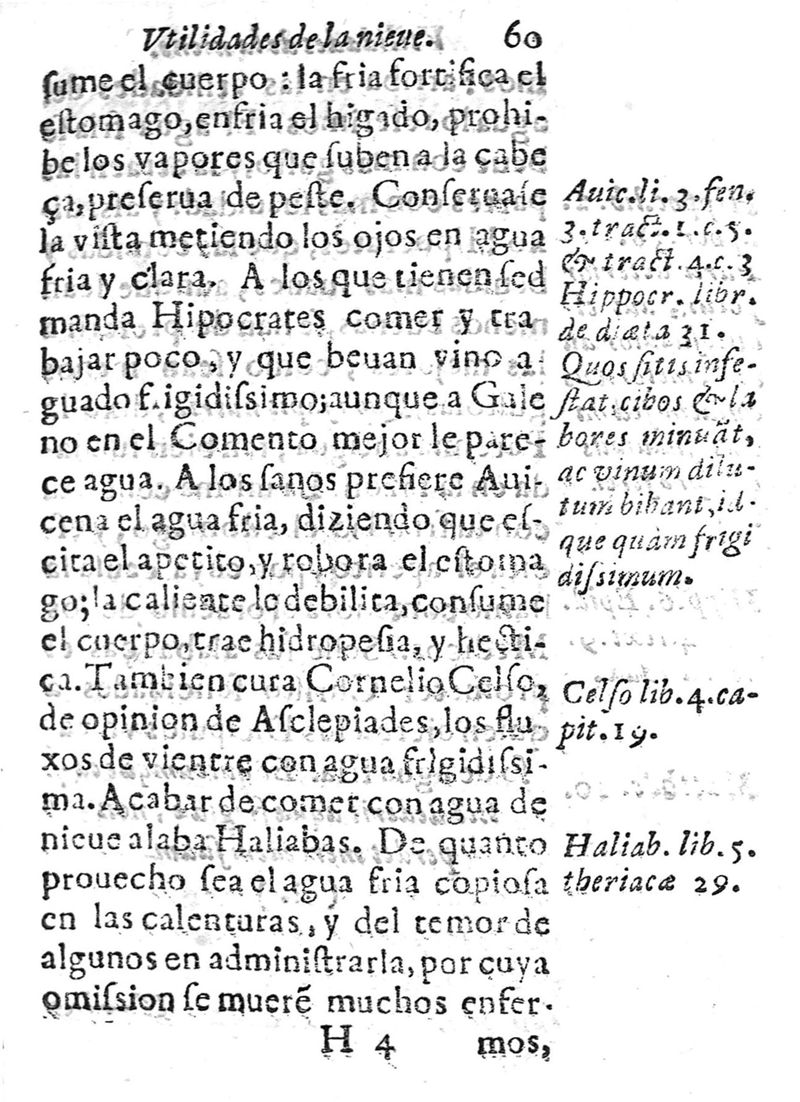 Vtilidades de la nieue. 60
ſume el cuerpo : la fria fortifica el
eſtomago, enfria el higado, prohi-
be los vapores que ſuben a la cabe
ça, preſerua de peſte. Conſeruaſe
la viſta metiendo los ojos en agua
fria y clara. A los que tienen ſed
manda Hipocrates comer y tra
bajar poco, y que beuan vino a
guado frigidiſsimo; aunque a Gale
no en el Comento mejor le pare-
ce agua. A los ſanos prefiere Aui-
cena el agua fria, diziendo que eſ-
cita el apetito, y robora el eſtoma
go; la caliente le debilita, conſume
el cuerpo, trae hidropeſia, y hecti-
ca. Tambien cura Cornelio Celſo,
de opinion de Aſclepiades, los flu-
xos de vientre con agua frigidiſsi-
ma. Acabar de comer con agua de
nieue alaba Haliabas. De quanto
prouecho ſea el agua fria copioſa
en las calenturas, y del temor de
algunos en adminiſtrarla, por cuya
omiſsion ſe muerẽ muchos enfer-
H 4 mos,
Auic. li. 3. fen.
3. tract. 1. c. 5.
& tract. 4. c. 3
Hippocr. libr.
de diæta 31.
Quos ſitis infe-
ſtat, cibos & la
bores minuãt,
ac vinum dilu-
tum bibant, id-
que quàm frigi
diſsimum.
Celſo lib. 4. ca-
pit. 19.
Haliab. lib. 5.
theriacæ 29.